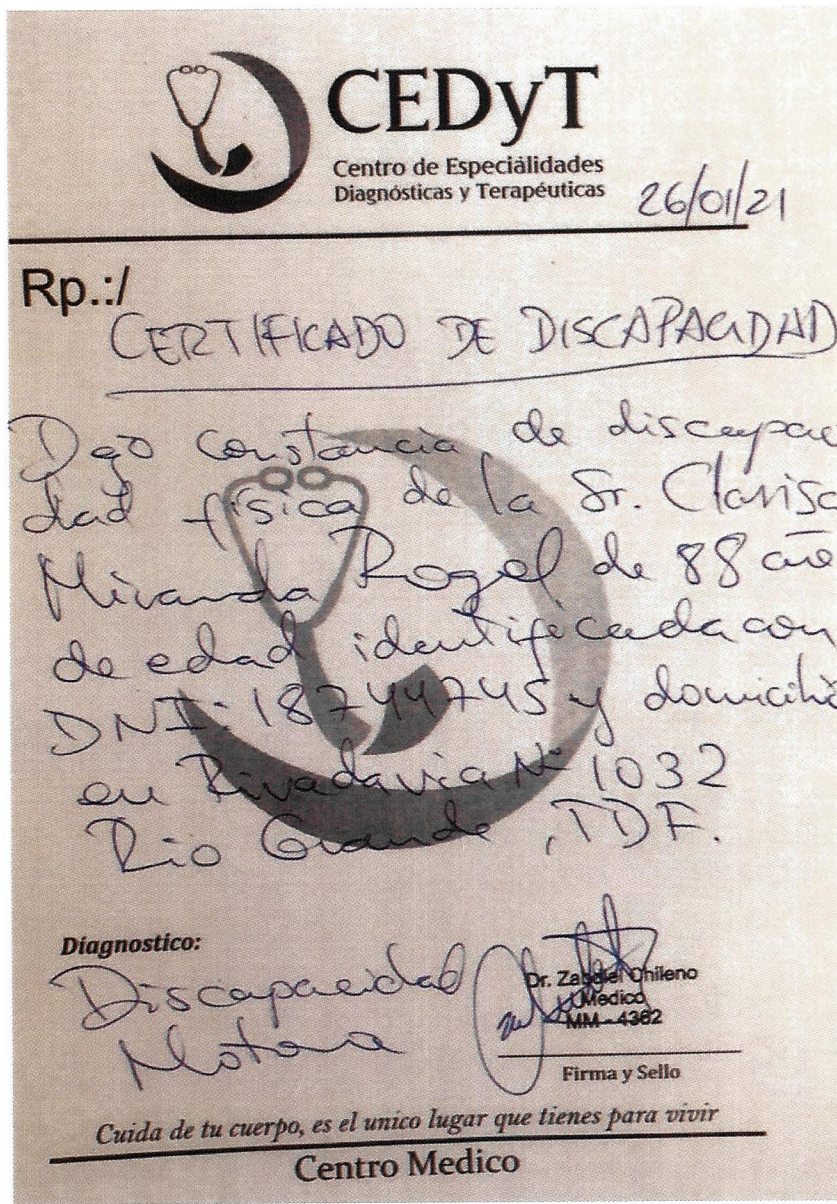 CEDyT
Centro de Especiálidades
Diagnósticas y Terapéuticas
26/01/21
Rp.:/
CERTIFICADO DE DISCAPACIDAD
Dejo constancia de discapaci
dad física de la Sr. Clarisa
Miranda Rogel de 88 año
de edad identificada con
DNI: 18744745 y domicilio
en Rivadavia Nº 1032
Rio Grande, TDF.
Diagnostico:
Discapacidad
Motora
Dr. Chileno
Medico
MM - 4362
Firma y Sello
Cuida de tu cuerpo, es el unico lugar que tienes para vivir
Centro Medico